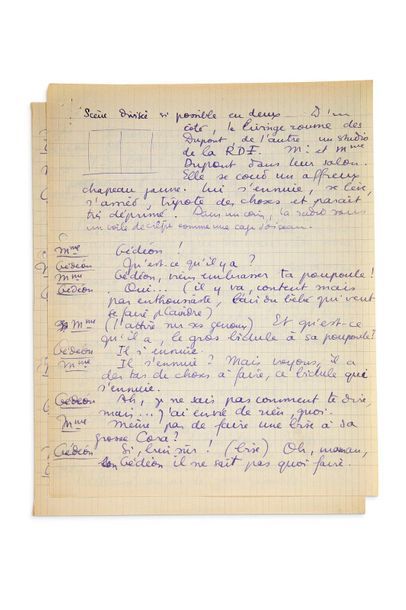 Scène divisée si possible en deux — D'un
côté, le livinge roume des
Dupont de l'autre un studio
de la RDF. Mr et Mme
Dupont dans leur salon.
Elle se coud un affreux
chapeau jaune. Lui s'ennuie, se lève,
s'assied, tripote des choses et paraît
très déprimé. Dans un coin, la radio sous
un voile de crêpe comme une cage d'oiseau.
Mme Gédéon !
Gédéon Qu'est-ce qu'il y a ?
Mme Gédéon, viens embrasser ta poupoule !
Gédéon Oui... (il y va, content mais
pas enthousiaste, l'air du bébé qui veut
se faire plaindre)
Mme (l'assied sur ses genoux) Et qu'est-ce
qu'il a, le gros bidule à sa poupoule ?
Gédéon Il s'ennuie.
Mme Il s'ennuie ? Mais voyons, il a
des tas de choses à faire, ce bidule qui
s'ennuie.
Gédéon Ah, je ne sais pas comment te dire,
mais... j'ai envie de rien, quoi.
Mme Même pas de faire une bise à sa
grosse Cora ?
Gédéon Si, bien sûr ! (bise) Oh, maman,
Gédéon il ne sait pas quoi faire.